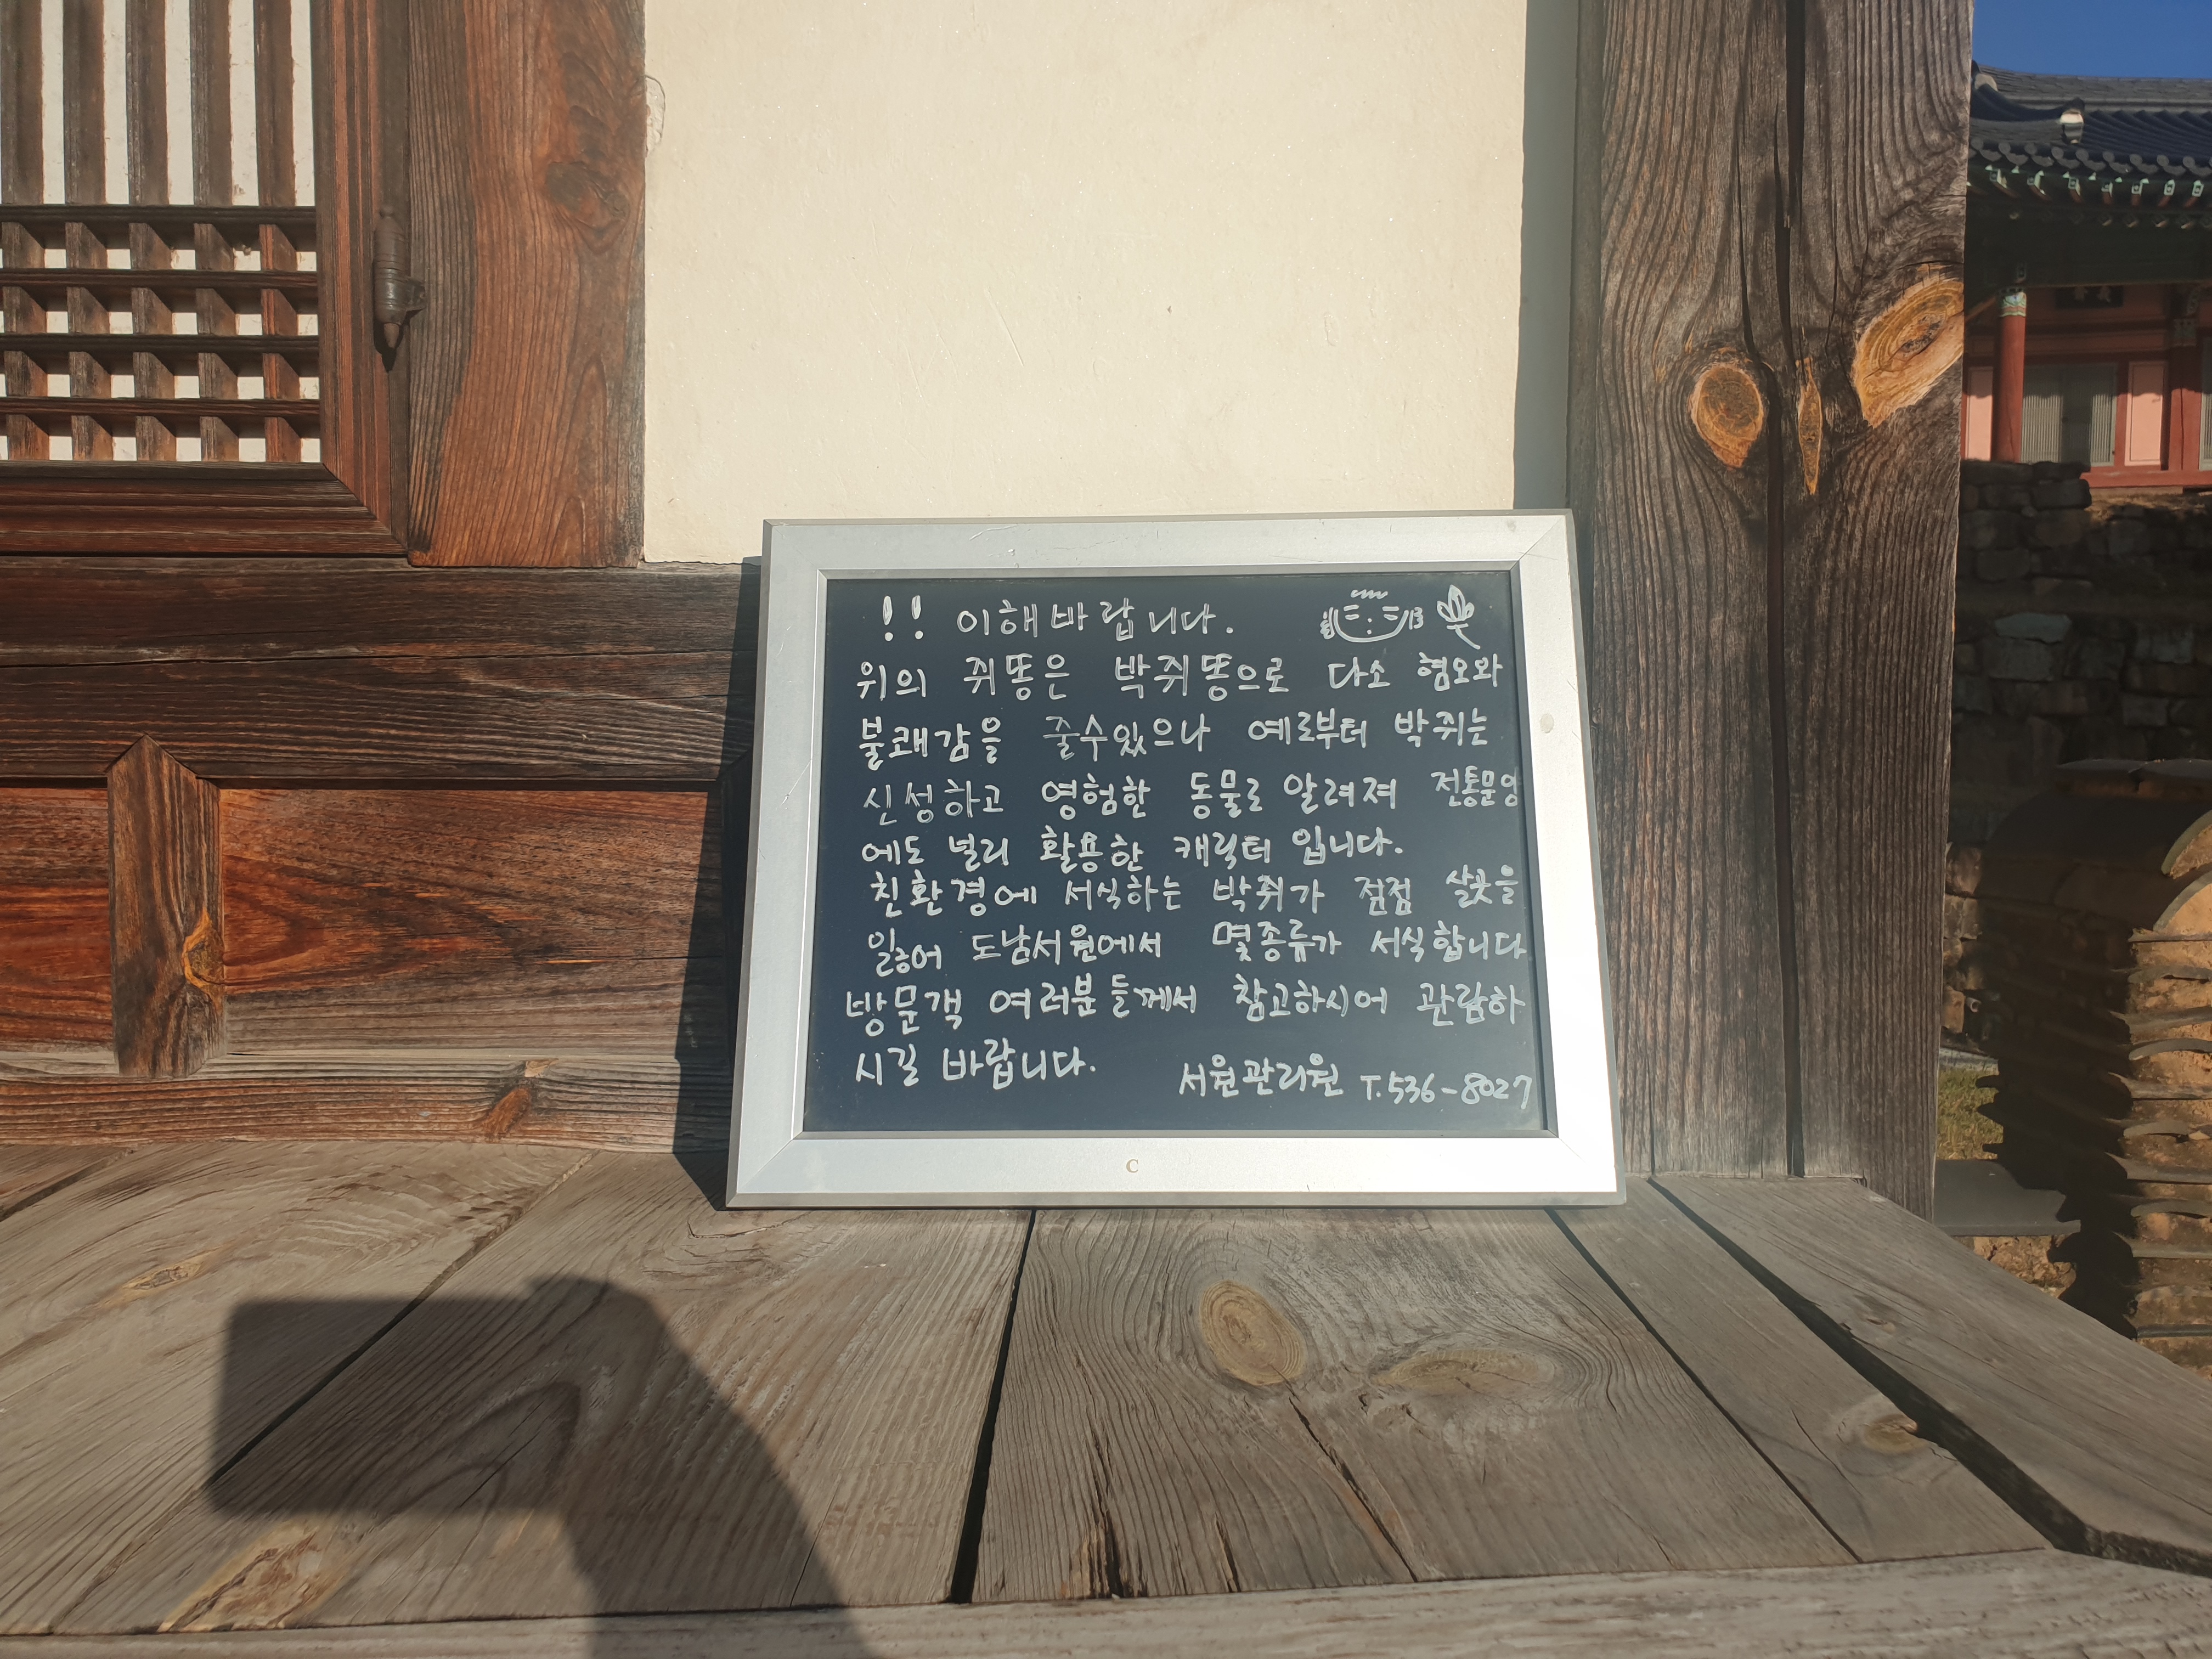 !! 이해바랍니다.
위의 쥐똥은 박쥐똥으로 다소 혐오와
불쾌감을 줄수있으나 예로부터 박쥐는
신성하고 영험한 동물로 알려져 전통문양
에도 널리 활용한 캐릭터 입니다.
친환경에 서식하는 박쥐가 점점 살곳을
잃어 도남서원에서 몇종류가 서식합니다
방문객 여러분들께서 참고하시어 관람하
시길 바랍니다.
서원관리원 T.536-8027
C